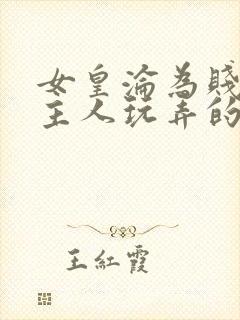 女皇淪為賤
主人玩弄的
王紅霞